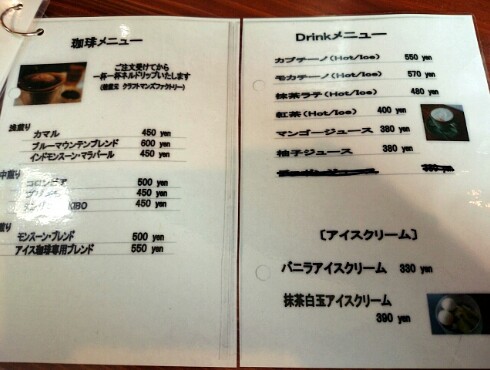 珈琲メニュー
ご注文受けてから
一杯一杯ネルドリップいたします
クラフトマンズファクトリー)
浅煎り
カマル 450 yen
ブルーマウンテンブレンド 600 yen
インドモンスーン・マラバール 450 yen
中煎り
コロンビア 500 yen
ブラジル 450 yen
450 yen
煎り
モンスーン・ブレンド 500 yen
アイス珈琲専用ブレンド 550 yen
Drinkメニュー
カプチーノ(Hot/Ice) 550 yen
モカチーノ(Hot/Ice) 570 yen
抹茶ラテ(Hot/Ice) 480 yen
紅茶(Hot/Ice) 400 yen
マンゴージュース 380 yen
柚子ジュース 380 yen
[アイスクリーム]
バニラアイスクリーム 330 yen
抹茶白玉アイスクリーム
390 yen